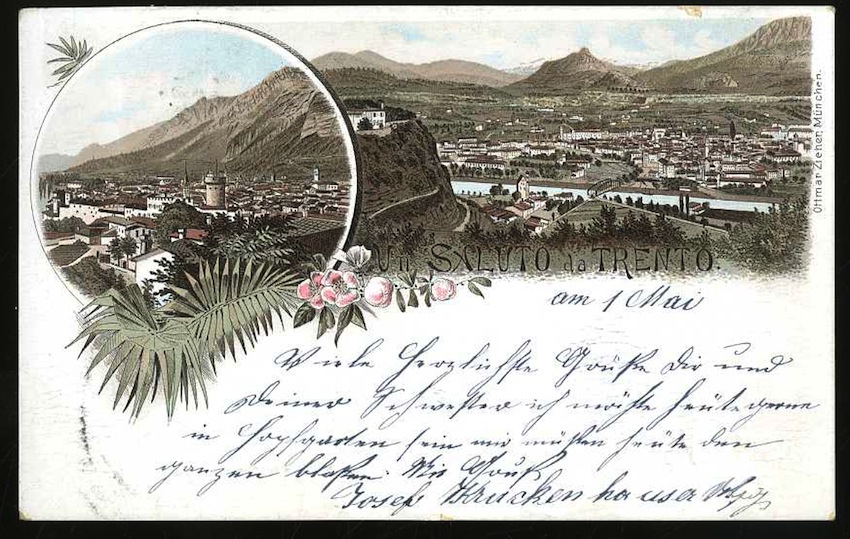 Un SALUTO da TRENTO.
Ottmar Zieher, München.
am 1 Mai
Viele Herzlichste Grüße Dir und
Deiner Schwester ich möchte heute gerne
in Hopfgarten sein wir müßen heute den
ganzen blaßen. Mit Gruß
Josef Kruckenhauser